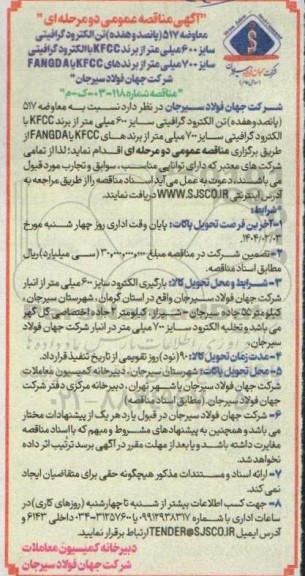 "آگهی مناقصه عمومی دو مرحله ای"
معاوضه ۵۱۷ (پانصد و هفده) تن الکترود گرافیتی
سایز ۶۰۰ میلی متر از برند KFCC با الکترود گرافیتی
سایز ۷۰۰ میلی متر از برند های KFCC یا FANGDA
شرکت جهان فولاد سیرجان
"مناقصه شماره ۱۱۸-۰۳-ک-م"
شرکت جهان فولاد سیرجان در نظر دارد نسبت به معاوضه ۵۱۷
(پانصد و هفده) تن الکترود گرافیتی سایز ۶۰۰ میلی متر از برند KFCC با
الکترود گرافیتی سایز ۷۰۰ میلی متر از برند های KFCC یا FANGDA از
طریق برگزاری مناقصه عمومی دو مرحله ای اقدام نماید؛ لذا از تمامی
شرکت های معتبر که دارای توانایی مناسب، سوابق و تجارب مورد قبول
می باشند، دعوت به عمل می آید اسناد مناقصه را از طریق مراجعه به
آدرس اینترنتی WWW.SJSCO.IR دریافت نمایند.
شرایط:
۱- آخرین فرصت تحویل پاکات: پایان وقت اداری روز چهار شنبه مورخ
۱۴۰۴/۰۲/۰۳
۲- تضمین شرکت در مناقصه مبلغ ۳۰,۰۰۰,۰۰۰,۰۰۰ (سی میلیارد) ریال
مطابق اسناد مناقصه.
۳- شرایط و محل تحویل کالا: بارگیری الکترود سایز ۶۰۰ میلی متر از انبار
شرکت جهان فولاد سیرجان واقع در استان کرمان، شهرستان سیرجان،
کیلومتر ۵۵ جاده سیرجان - شیراز، کیلومتر ۲ جاده اختصاصی گل گهر
می باشد و تخلیه الکترود سایز ۷۰۰ میلی متر در انبار شرکت جهان فولاد
سیرجان
۴- مدت زمان تحویل کالا: ۹۰ (نود) روز تقویمی از تاریخ تنفیذ قرارداد.
۵- محل تحویل پاکات: شهرستان سیرجان، دبیرخانه کمیسیون معاملات
شرکت جهان فولاد سیرجان یا شهر تهران، دبیرخانه مرکزی دفتر شرکت
جهان فولاد سیرجان (مطابق اسناد مناقصه)
۶- شرکت جهان فولاد سیرجان در قبول یا رد هر یک از پیشنهادات مختار
می باشد و همچنین به پیشنهادهای مشروط و مبهم که با اسناد مناقصه
مغایرت داشته باشد و یا بعد از مهلت مقرر در آگهی برسد ترتیب اثر داده
نخواهد شد.
۷- ارائه اسناد و مستندات مذکور هیچگونه حقی برای متقاضیان ایجاد
نمی کند.
۸- جهت کسب اطلاعات بیشتر از شنبه تا چهارشنبه (روزهای کاری) در
ساعات اداری با شماره ۰۹۹۱۲۹۳۸۳۱۷ یا ۰۳۴-۳۱۲۵۷۶۰۰ داخلی ۶۱۴۳ و
آدرس ایمیل TENDER@SJSCO.IR ارتباط برقرار نمایید.
دبیرخانه کمیسیون معاملات
شرکت جهان فولاد سیرجان